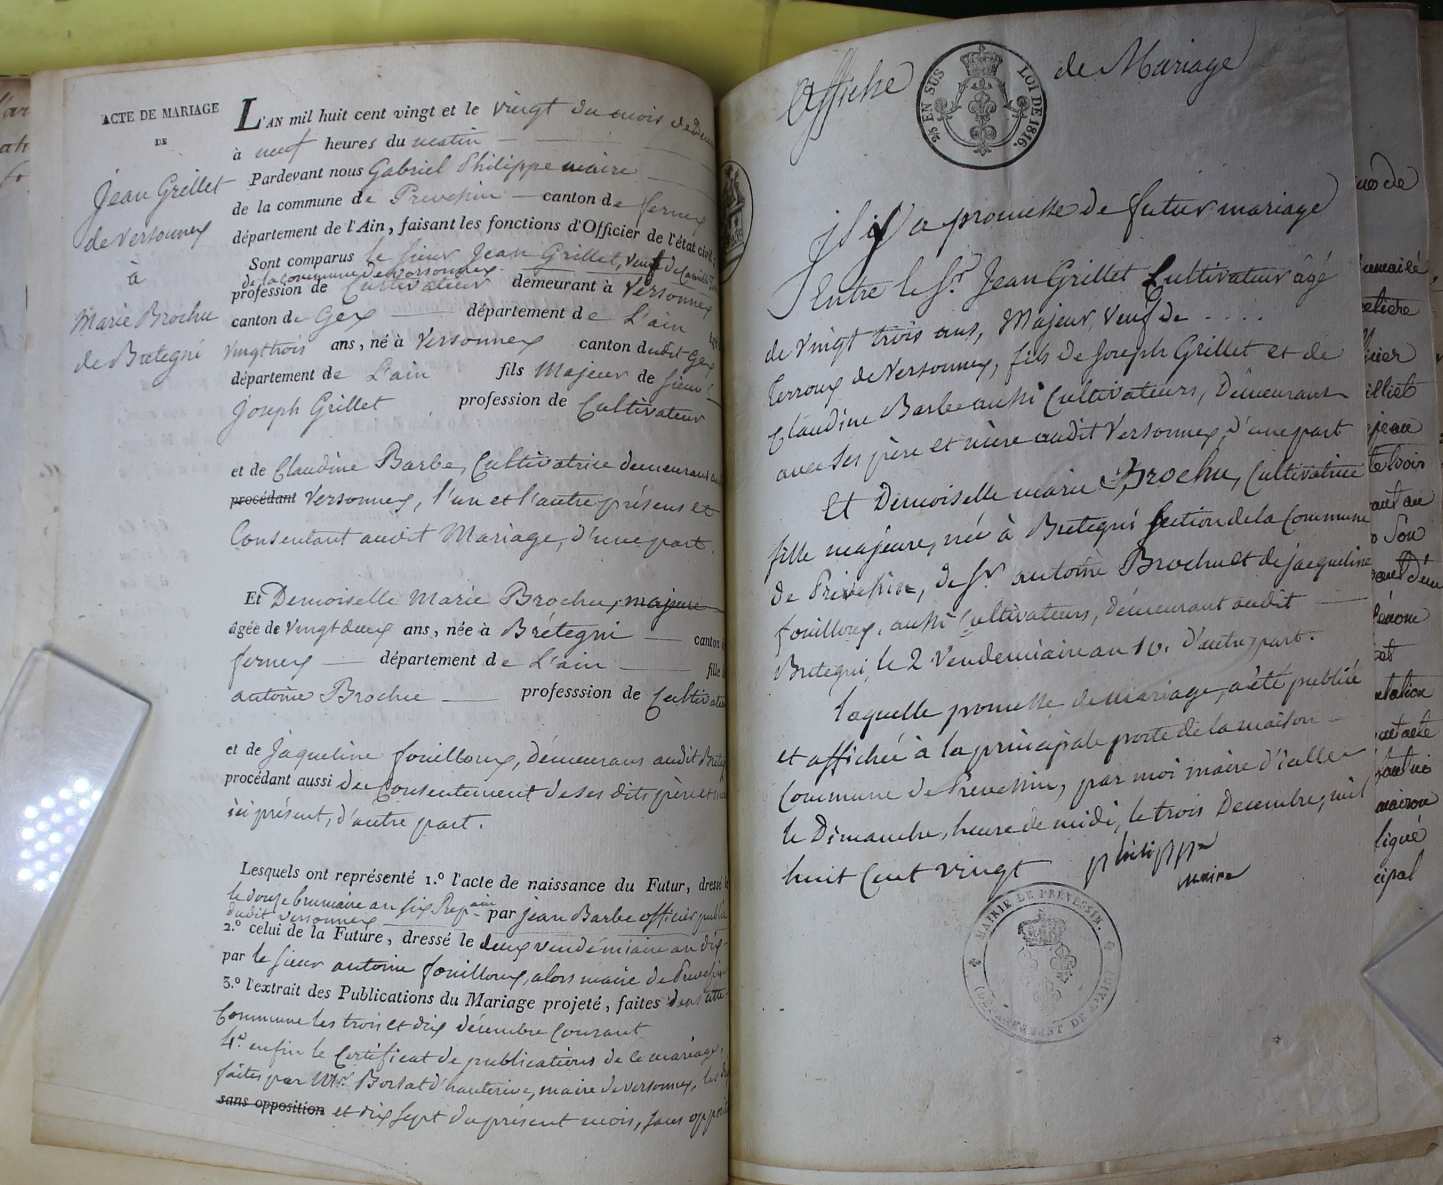 ACTE DE MARIAGE
DE
Jean Grillet
de Versonnex
à
Marie Brochu
de Bretegni
L'AN mil huit cent vingt et le vingt du mois de
à neuf heures du matin
Pardevant nous Gabriel Philippe maire
de la commune de Prevessin canton de fernex
département de l'Ain, faisant les fonctions d'Officier de l'état civil,
Sont comparus le sieur Jean Grillet, veuf de
de la Commune de Versonnex
profession de Cultivateur demeurant à Versonnex
canton de Gex département de L'ain
vingt trois ans, né à Versonnex canton dudit Gex
département de L'ain fils Majeur de Sieur
Joseph Grillet profession de Cultivateur
et de Claudine Barbe, Cultivatrice demeurant
procédant Versonnex, l'un et l'autre présens et
Consentant audit Mariage, d'une part.
Et Demoiselle Marie Brochu, majeure
âgée de vingt deux ans, née à Brétegni canton
fernex département de L'ain fille
antoine Brochu professsion de Cultivateur
et de Jaqueline fouilloux, démeurans audit
procédant aussi du Consentement de ses dits père et
ici présent, d'autre part.
Lesquels ont représenté 1.º l'acte de naissance du Futur, dressé
le douze brumaire an six Rep.ain par jean Barbe officier public
dudit Versonnex
2.º celui de la Future, dressé le deux vendémiaire an dix
par le sieur antoine fouilloux, alors maire de Prevessin
3.º l'extrait des Publications du Mariage projeté, faites dans cette
Commune les trois et dix décembre Courant
4.º enfin le Certificat de publications de ce mariage,
faites par Mr. Borsat d'hauterive, maire de versonnex, les dix
sans opposition et dix sept du présent mois, sans opposition
Affiche de Mariage
25 EN SUS LOI DE 1816.
Il y a promesse de futur mariage
Entre le Sr. Jean Grillet Cultivateur âgé
de vingt trois ans, Majeur, veuf de . . . .
Terroux de Versonnex, fils de Joseph Grillet et de
Claudine Barbe aussi Cultivateurs, Démeurant
avec ses père et mère audit Versonnex, d'une part
Et Demoiselle marie Brochu, Cultivatrice
fille majeure, née à Bretegni section de la Commune
de Prévessin, de Sr antoine Brochu et de jacqueline
fouilloux, aussi Cultivateurs, démeurant audit
Bretegni, le 2 Vendemiaire an 10. d'autre part.
laquelle promesse de mariage, a été publiée
et affichée à la principale porte de la maison
Commune de Prevessin, par moi maire d'icelle
le Dimanche, heure de midi, le trois Decembre, mil
huit Cent vingt philippe
maire
MAIRIE DE PRÉVESSIN.
(DÉPARTEMENT DE L'AIN)